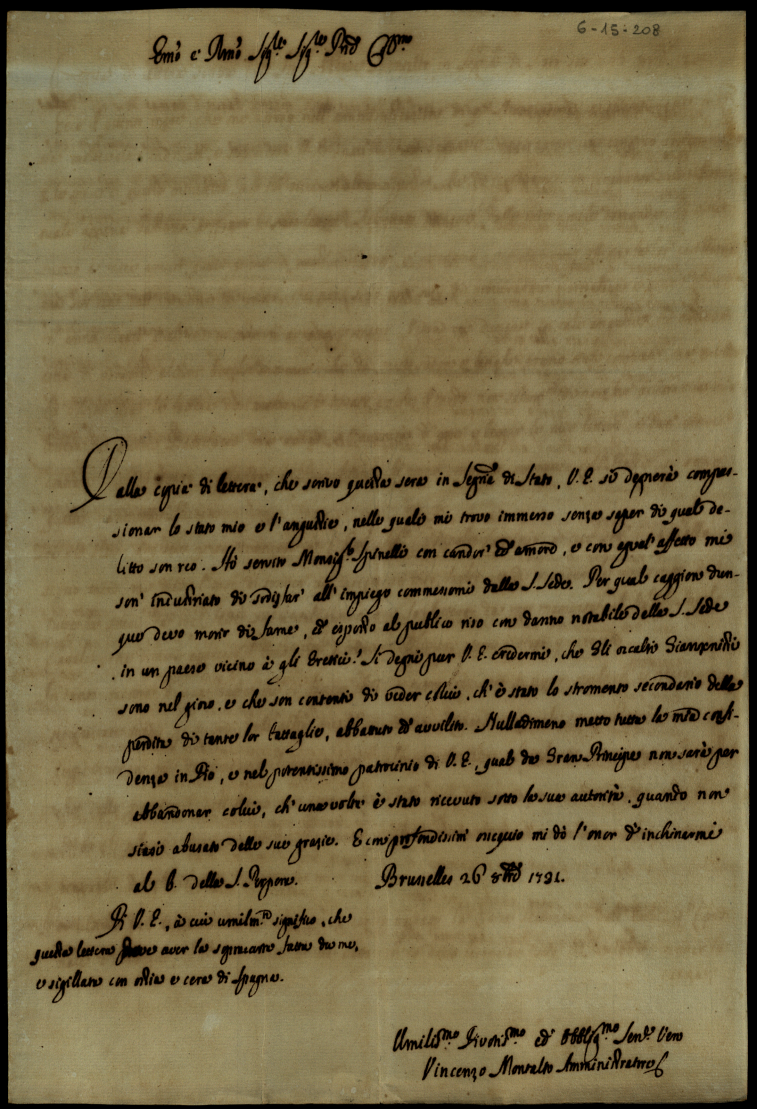 6-15-208
Emo e Rmo Sigre Sigre Pne Colmo
Dalla copia di lettera, che scrivo questa sera in Segria di Stato, V. E. si degnerà compas-
sionar lo stato mio e l'angustie, nelle quali mi trovo immerso senza saper di qual de-
litto son reo. Hò servito Monsigr Spinelli con candor' ed amore, e con egual' affetto mi
son' industriato di sodisfar' all' impiego commessomi dalla S. Sede. Per qual caggion dun-
que devo morir di fame, ed esposto al publico riso con danno notabile della S. Sede
in un paese vicino à gli Eretici? Si degni pur V. E. credermi, che Gli occulti Giansenisti
sono nel giro, e che son contenti di veder colui, ch' è stato lo stromento secondario della
perdita di tante lor battaglie, abbattuto ed avvilito. Nulladimeno metto tutta la mia confi-
denza in Dio, e nel potentissimo patrocinio di V. E., qual da Gran Principe non sarà per
abbandonar colui, ch' una volta è stato ricevuto sotto la sua autorità, quando non
siasi abusato delle sue grazie. E con profondissimi ossequio mi dò l'onor d'inchinarmi
al b. della S. Porpora. Bruselles 26 8bre 1731.
Di V. E., à cui umilmte significo, che
questa lettera deve aver la sopracarta fatta da me,
e sigillata con ostia e cera di Spagna.
Umilismo Divotismo ed Obbligmo Serve Vero
Vincenzo Montalto Amministratore